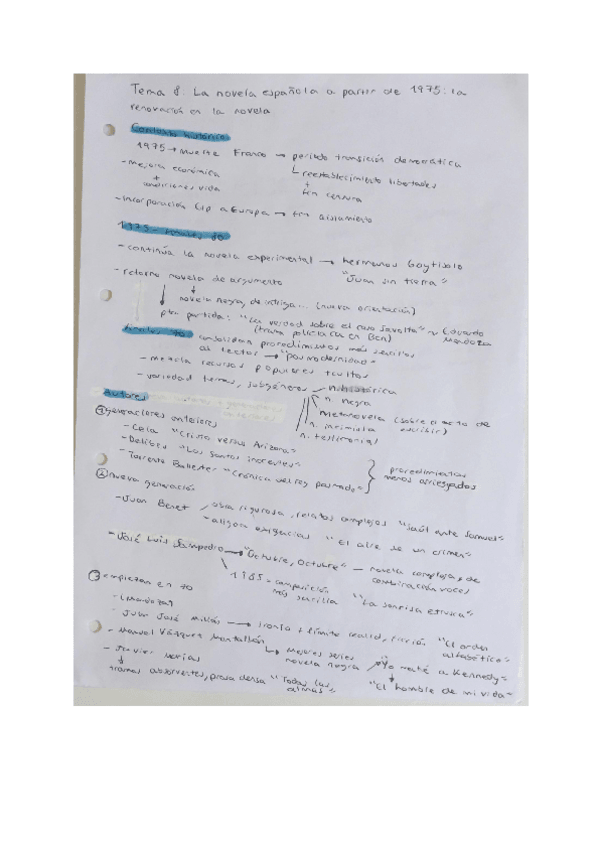 Tema 8. La novela española a partir de 1975: la
renovación en la novela
Contexto histórico
1975 → Muerte Franco → período transición democrática
- Mejora económica
+
condiciones vida
↳ reestablecimiento libertades
+
fin censura
- Incorporación Esp a Europa → fin aislamiento
1975 - finales 80
- continúa la novela experimental → hermanos Goytisolo
"Juan sin tierra"
- retorno novela de argumento
novela negra, de intriga... (nueva orientación)
pto partida: "La verdad sobre el caso Savolta" ~ Eduardo Mendoza
(trama policiaca en Bcn)
Finales 70 consolidan procedimientos más sencillos
al lector → "posmodernidad"
- mezcla recursos populares + cultos
- variedad temas, subgéneros
n. histórica
n. negra
metanovela (sobre el acto de escribir)
n. intimista
n. testimonial
Autores
① generaciones anteriores
- Cela "Cristo versus Arizona"
- Delibes "Los Santos inocentes"
- Torrente Ballester "Crónica del rey pasmado"
} procedimientos
menos arriesgados
② nueva generación
- Juan Benet obra rigurosa, relatos complejos "Saúl ante Samuel"
- aligera exigencias "El aire de un crimen"
- José Luis Sampedro → "Octubre, Octubre" — novela compleja, de
combinación voces
1985 = composición
más sencilla "La sonrisa etrusca"
③ empiezan en 70
- (Mendoza)
- Juan José Millás → ironía + límite realid, ficción "El orden
alfabético"
- Manuel Vázquez Montalbán
↳ Mejores series
novela negra "Yo maté a Kennedy"
"El hombre de mi vida"
- Javier Marías
tramas absorventes, prosa densa "Todas las
almas"